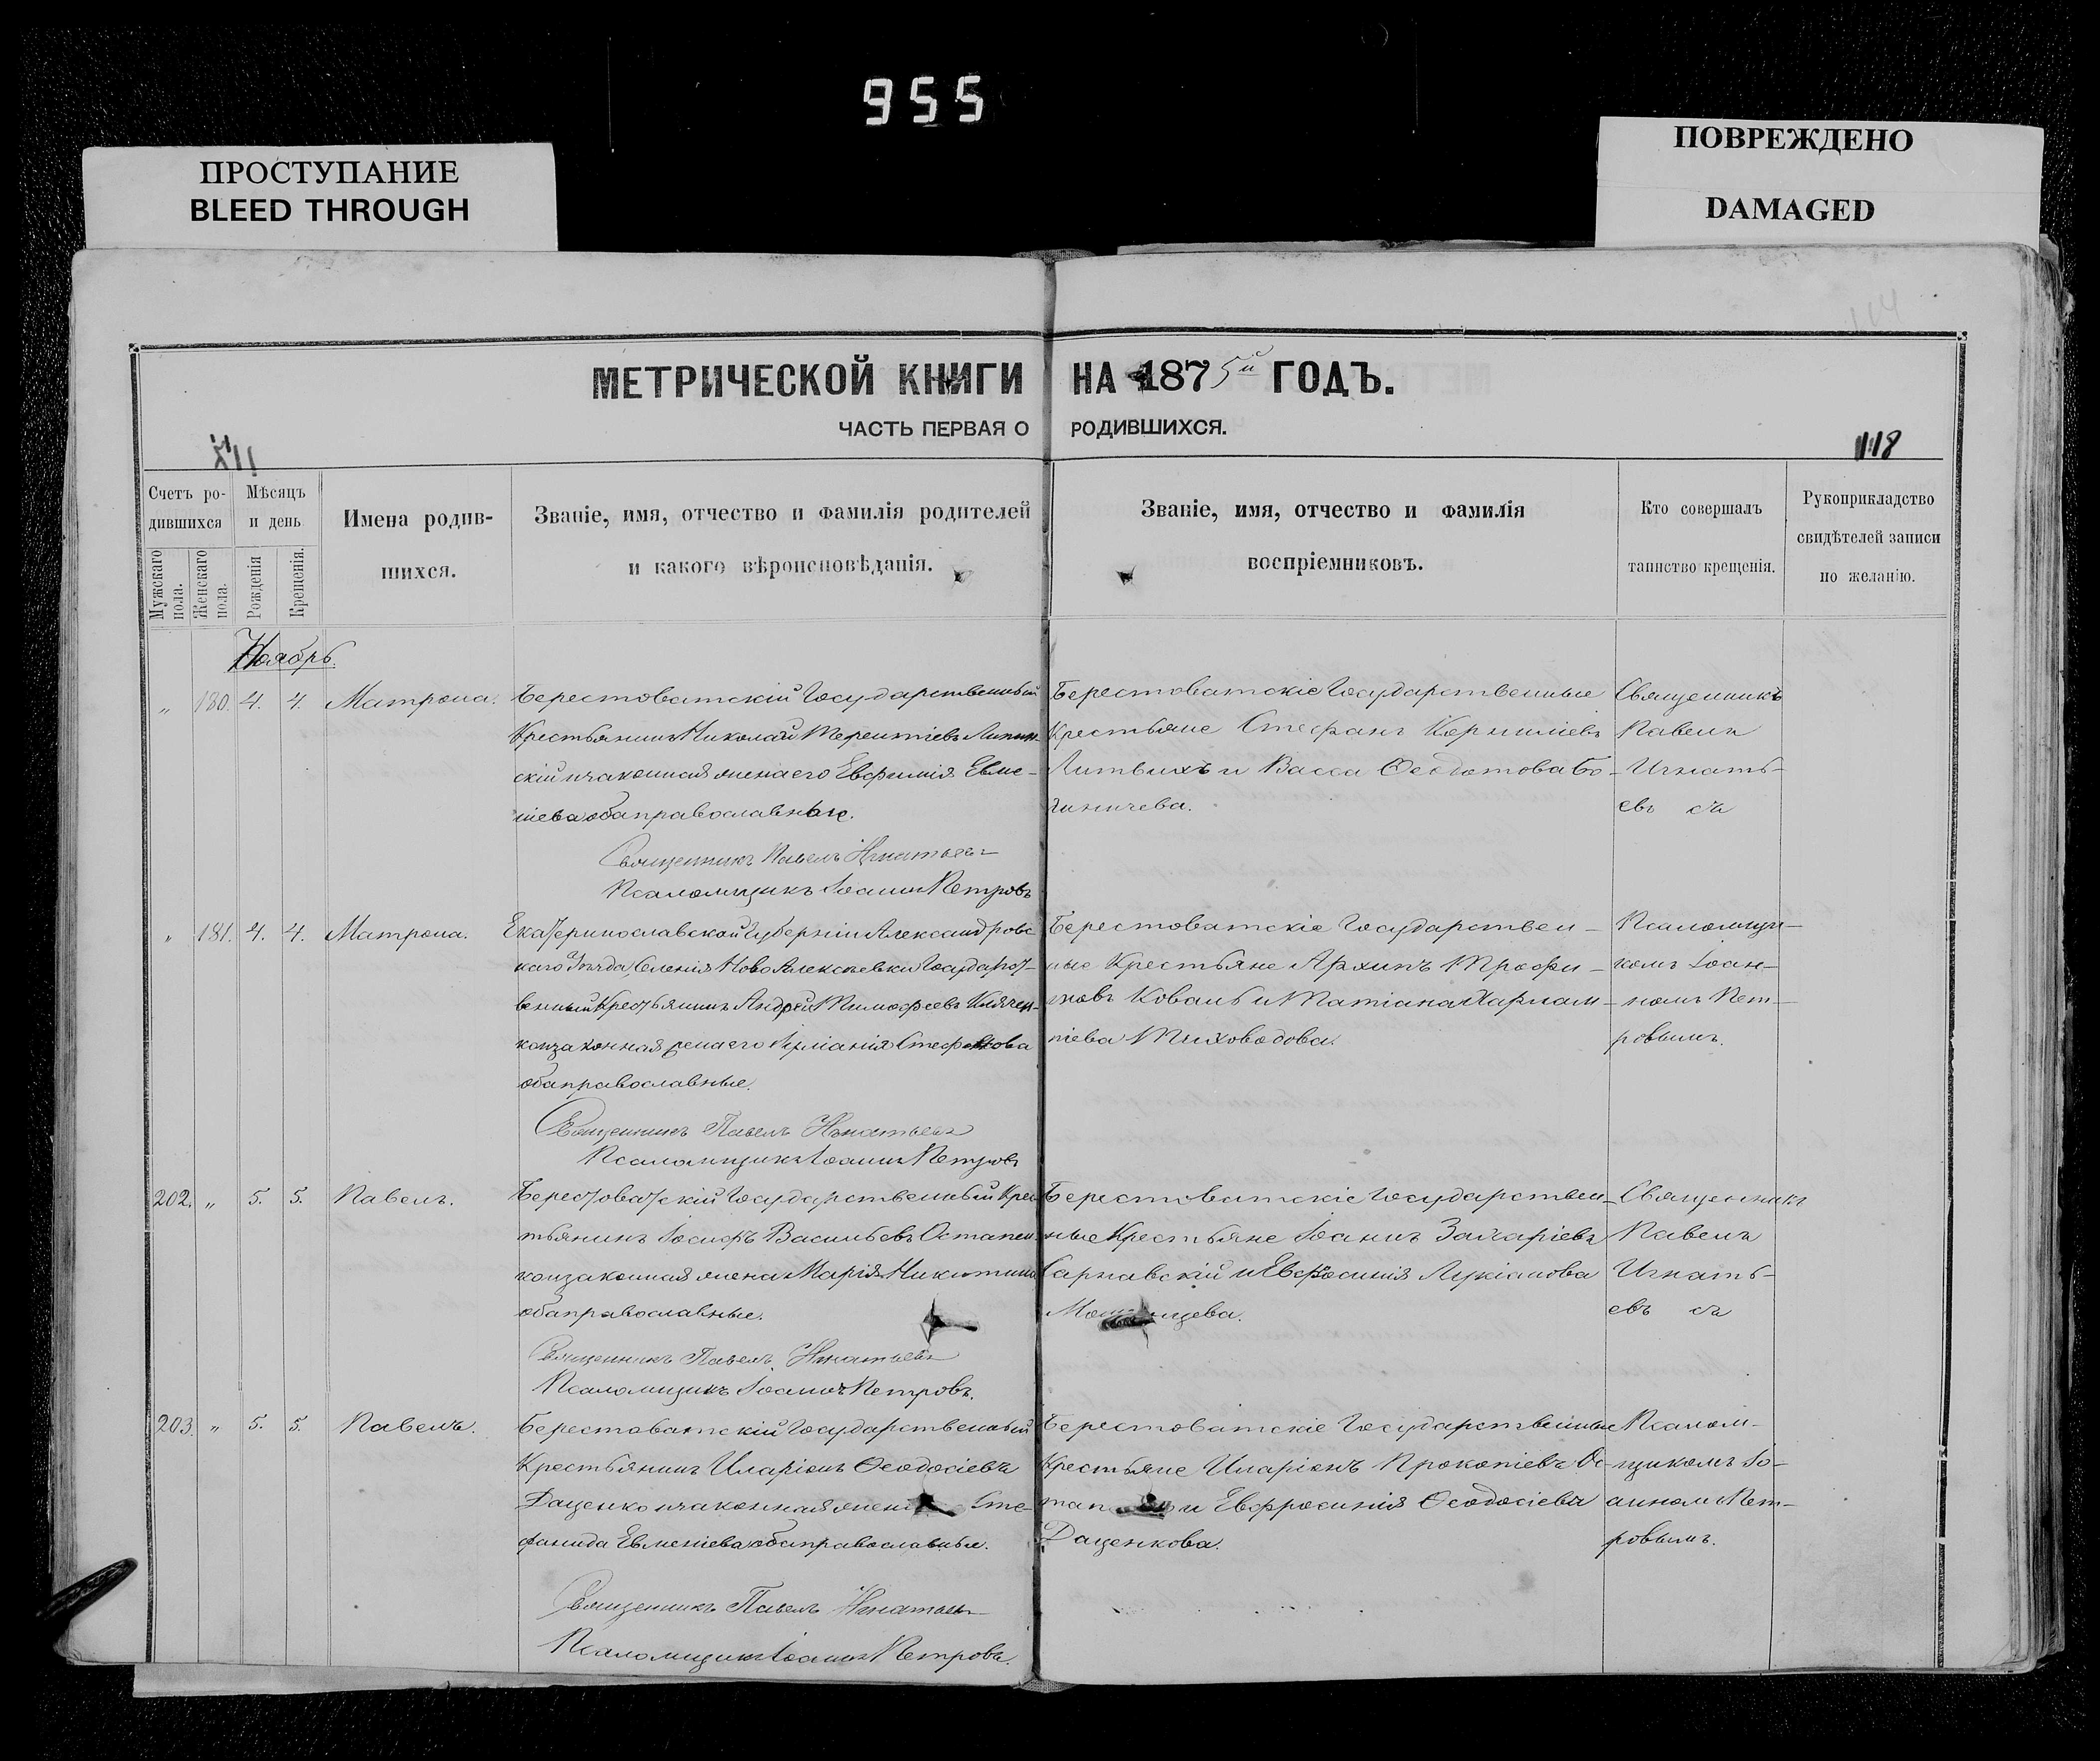 955
ПРОСТУПАНИЕ
BLEED THROUGH
ПОВРЕЖДЕНО
DAMAGED
МЕТРИЧЕСКОЙ КНИГИ НА 1875й ГОДЪ.
ЧАСТЬ ПЕРВАЯ О РОДИВШИХСЯ.
118
Счетъ ро-
дившихся
Мужскаго пола.
Женскаго пола.
Мѣсяцъ
и день
Рожденія
Крещенія.
Имена родив-
шихся.
Званіе, имя, отчество и фамилія родителей
и какого вѣроисповѣданія.
Званіе, имя, отчество и фамилія
воспріемниковъ.
Кто совершалъ
таинство крещенія.
Рукоприкладство
свидѣтелей записи
по желанію.
Ноябрь.
„ 180. 4. 4. Матрона.
Берестоватскій Государственный
Крестьянинъ Николай Терентіевъ Липин-
скій и законная жена его Евфимія Евме-
ніева оба православные.
Священникъ Павелъ Игнатьевъ
Псаломщикъ Іоаннъ Петровъ
Берестоватскіе Государственные
Крестьяне Стефанъ Корниліевъ
Литвихъ и Васса Ѳеодотова Бо-
гиничева.
Священникъ
Павелъ
Игнать-
евъ съ
„ 181. 4. 4. Матрона.
Екатеринославской Губерніи Александровс
каго Уѣзда Селенія Ново Алексѣевки Государст-
венный Крестьянинъ Андрей Тимофеевъ
законная жена его Стефанова
оба православные.
Священникъ Павелъ Игнатьевъ
Псаломщикъ Іоаннъ Петровъ
Берестоватскіе Государствен-
ные Крестьяне Архипъ Трофи-
мовъ Коваль и Татіана Харлам-
піева Тиховодова.
Псаломщи-
комъ Іоан-
номъ Пет-
ровымъ.
202. „ 5. 5. Павелъ.
Берестоватскій Государственный Крес
тьянинъ Іосифъ Васильевъ Остапен
ко и законная жена Марія Никитина
оба православные.
Священникъ Павелъ Игнатьевъ
Псаломщикъ Іоаннъ Петровъ.
Берестоватскіе Государствен-
ные Крестьяне Іоаннъ Захаріевъ
Сарнавскій и Евфросинія Лукіанова
Священникъ
Павелъ
Игнать-
евъ съ
203. „ 5. 5. Павелъ.
Берестоватскій Государственный
Крестьянинъ Иларіонъ Ѳеодосіевъ
Даценко и законная жена Сте-
фанида Евменіева оба православные.
Священникъ Павелъ Игнатьевъ
Псаломщикъ Іоаннъ Петровъ.
Берестоватскіе Государственные
Крестьяне Иларіонъ Прокопіевъ Ос-
тап и Евфросинія Ѳеодосіева
Даценкова.
Псалом-
щикомъ Іо-
анномъ Пет-
ровымъ.